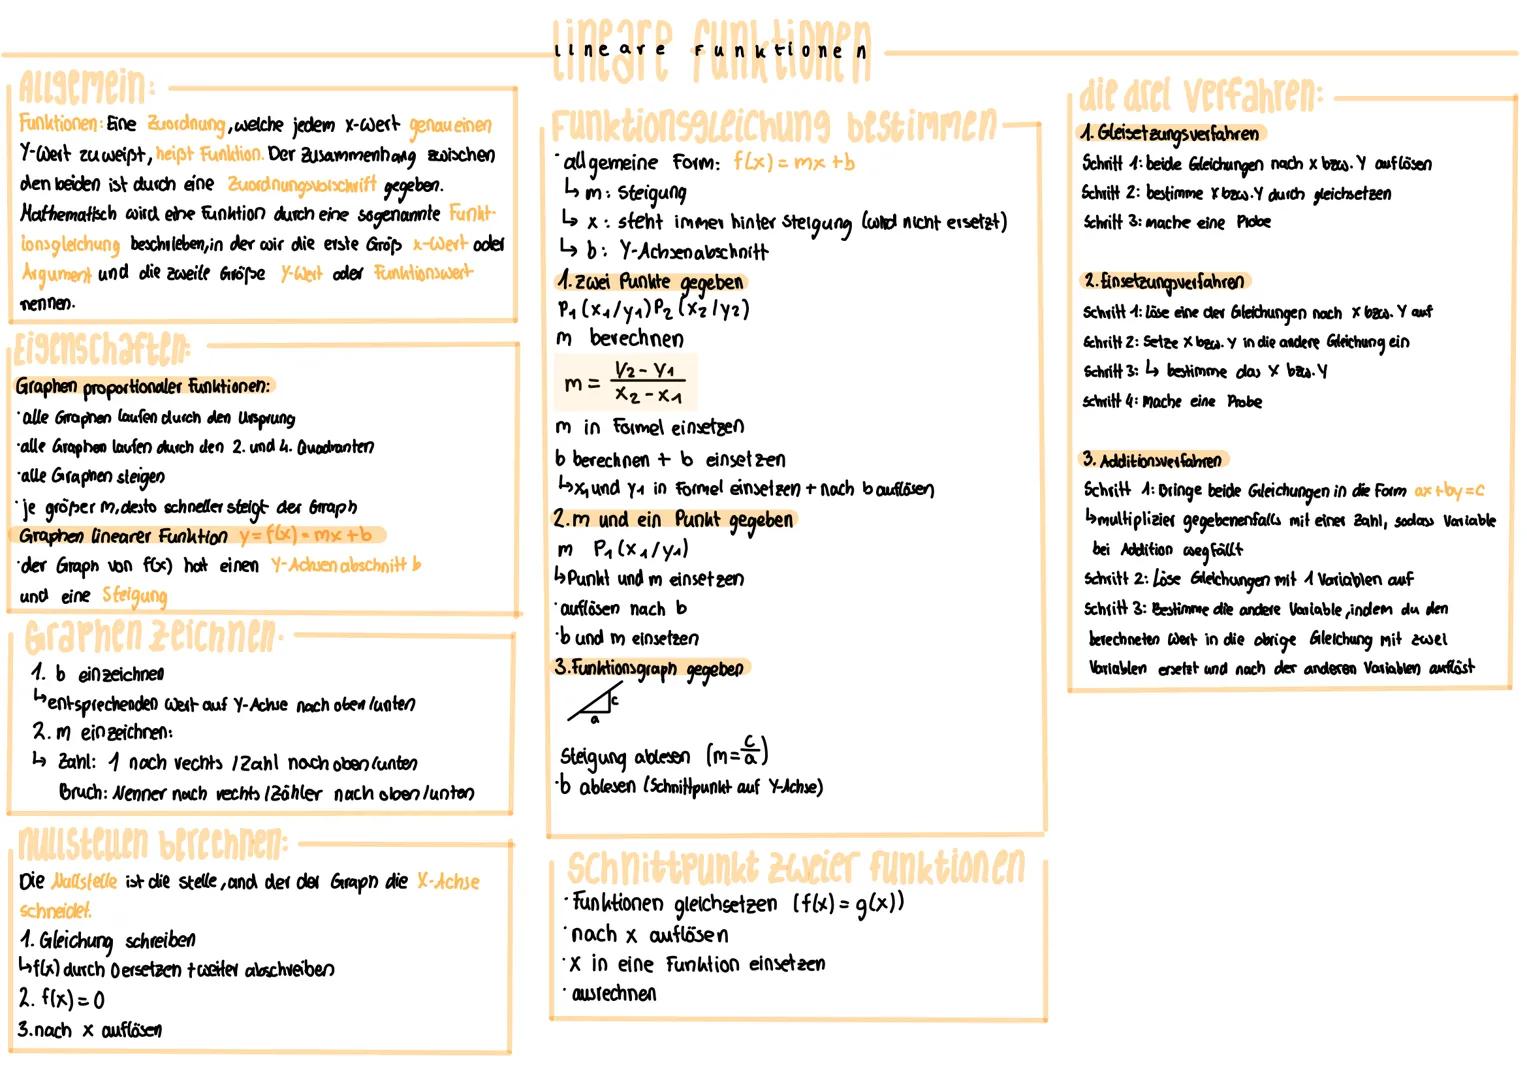 Lineare Funktionen
Lineare Funktionen
Allgemein:
Funktionen: Eine Zuordnung, welche jedem x-Wert genau einen
Y-Wert zuweist, heißt Funktion. Der Zusammenhang zwischen
den beiden ist durch eine Zuordnungsvorschrift gegeben.
Mathematisch wird eine Funktion durch eine sogenannte Funkt-
ionsgleichung beschrieben, in der wir die erste Größ x-Wert oder
Argument und die zweite Größe Y-Wert oder Funktionswert
nennen.
Eigenschaften:
Graphen proportionaler Funktionen:
·alle Graphen laufen durch den Ursprung
·alle Graphen laufen durch den 2. und 4. Quadranten
·alle Graphen steigen
·je größer m, desto schneller steigt der Graph
Graphen linearer Funktion y=f(x)=mx+b
·der Graph von f(x) hat einen Y-Achsenabschnitt b
und eine Steigung
Graphen zeichnen:
1. b einzeichnen
↳entsprechenden Wert auf Y-Achse nach oben/unten
2. m einzeichnen:
↳ Zahl: 1 nach rechts /Zahl nach oben/unten
Bruch: Nenner nach rechts /Zähler nach oben/unten
Nullstellen berechnen:
Die Nullstelle ist die Stelle, and der der Graph die X-Achse
schneidet.
1. Gleichung schreiben
↳f(x) durch 0 ersetzen + weiter abschreiben
2. f(x)=0
3.nach x auflösen
Funktionsgleichung bestimmen
·allgemeine Form: f(x)=mx+b
↳ m: Steigung
↳ x: steht immer hinter Steigung (wird nicht ersetzt)
↳ b: Y-Achsenabschnitt
1.zwei Punkte gegeben
P₁(x₁/y₁)P₂(x₂/y₂)
m berechnen
m = Y₂-Y₁ / X₂-X₁
m in Formel einsetzen
b berechnen + b einsetzen
↳x₁ und y₁ in Formel einsetzen + nach b auflösen
2.m und ein Punkt gegeben
m P₁(x₁/y₁)
↳Punkt und m einsetzen
·auflösen nach b
·b und m einsetzen
3.Funktionsgraph gegeben
c
a
Steigung ablesen (m=c/a)
·b ablesen (Schnittpunkt auf Y-Achse)
Schnittpunkt zweier Funktionen
·Funktionen gleichsetzen (f(x)=g(x))
·nach x auflösen
·X in eine Funktion einsetzen
·ausrechnen
die drei Verfahren:
1. Gleisetzungsverfahren
Schritt 1: beide Gleichungen nach x bzw. Y auflösen
Schritt 2: bestimme X bzw. Y durch gleichsetzen
Schritt 3: mache eine Probe
2.Einsetzungverfahren
Schritt 1: Löse eine der Gleichungen nach x bzw. Y auf
Schritt 2: Setze X bzw. Y in die andere Gleichung ein
Schritt 3: ↳ bestimme das X bzw. Y
Schritt 4: Mache eine Probe
3. Additionsverfahren
Schritt 1: Bringe beide Gleichungen in die Form ax+by=c
↳multiplizier gegebenenfalls mit einer Zahl, sodass Variable
bei Addition wegfällt
Schritt 2: Löse Gleichungen mit 1 Variablen auf
Schritt 3: Bestimme die andere Variable, indem du den
berechneten Wert in die obrige Gleichung mit zwei
Variablen ersetzt und nach der anderen Variablen auflöst